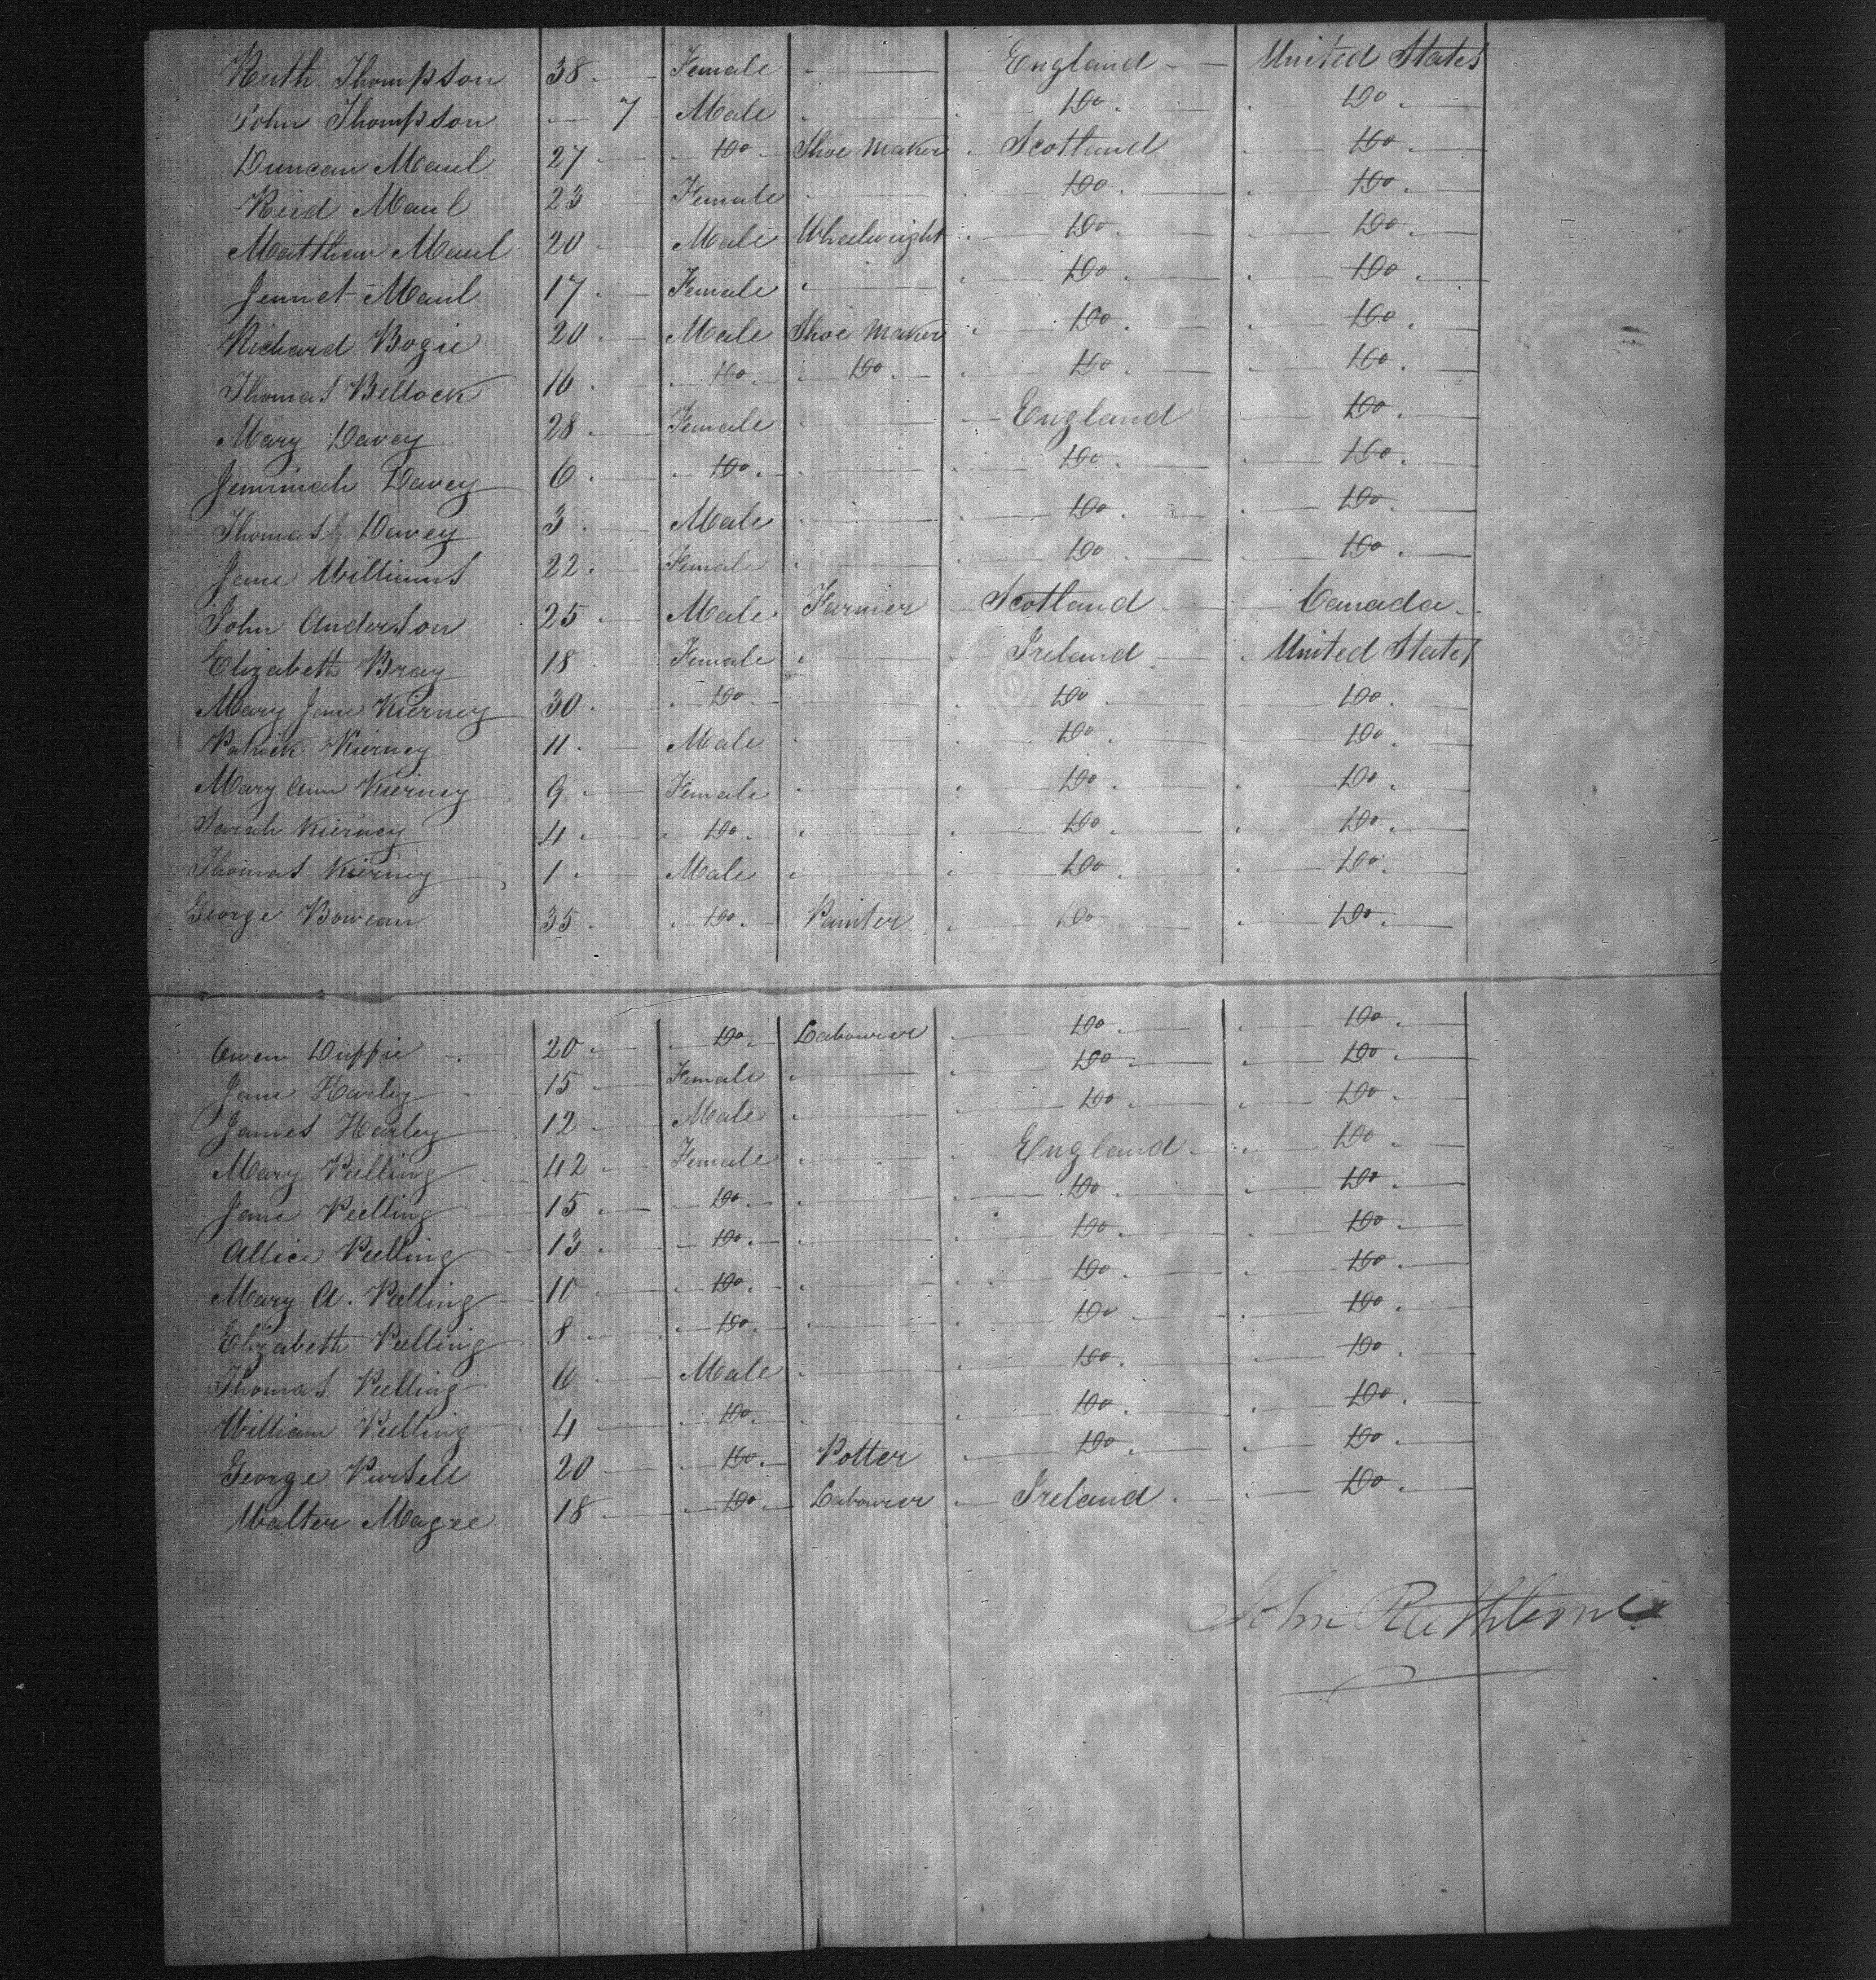 Ruth Thompson 38 Female England United States
John Thompson 7 Male Do Do
Duncan Maul 27 Do Shoe Maker Scotland Do
Reid Maul 23 Female Do Do
Matthew Maul 20 Male Wheelwright Do Do
Jennet Maul 17 Female Do Do
Richard Bogie 20 Male Shoe Maker Do Do
Thomas Bellock 16 Do Do Do Do
Mary Davey 28 Female England Do
Jemimah Davey 6 Do Do Do
Thomas Davey 3 Male Do Do
Jane Williams 22 Female Do Do
John Anderson 25 Male Farmer Scotland Canada
Elizabeth Bray 18 Female Ireland United States
Mary Jane Kierney 30 Do Do Do
Patrick Kierney 11 Male Do Do
Mary Ann Kierney 9 Female Do Do
Sarah Kierney 4 Do Do Do
Thomas Kierney 1 Male Do Do
George Bowean 35 Do Painter Do Do
Owen Duffie 20 Do Labourer Do Do
Jane Harley 15 Female Do Do
James Harley 12 Male Do Do
Mary Peelling 42 Female England Do
Jane Peelling 15 Do Do Do
Allice Peelling 13 Do Do Do
Mary A. Peelling 10 Do Do Do
Elizabeth Peelling 8 Do Do Do
Thomas Peelling 6 Male Do Do
William Peelling 4 Do Do Do
George Pursell 20 Do Potter Do Do
Walter Magee 18 Do Labourer Ireland Do
John Rathbone